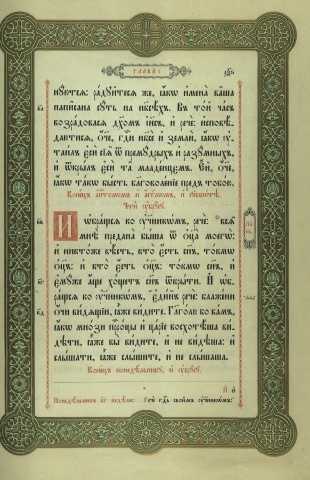 ГЛАВА І
нꙋютсѧ: ра́дꙋйтесѧ же, ꙗ҆́кѡ и҆мена̀ ва̑ша
напи̑сана сꙋ́ть на нб҃сѣ́хъ. Въ то́й ча́съ
возра́довасѧ дх҃омъ і҆и҃съ, и҆ речѐ: и҆сповѣ́
даютисѧ, ѻ҆́ч҃е, гдⷭ҇и нб҃сѐ и҆ землѝ, ꙗ҆́кѡ ᲂу҆
таи́лъ є҆сѝ сїѧ̑ ѿ премꙋ́дрыхъ и҆ разꙋ́мныхъ,
и҆ ѿкры́лъ є҆сѝ та̑ младе́нцємъ. Є҆́й, ѻ҆́ч҃е,
ꙗ҆́кѡ та́кѡ бы́сть бл҃говоле́нїе пред̾ тобо́ю.
И҆ ѡ҆бра́щьсѧ ко ᲂу҆чн҃кѡ́мъ, речѐ: всѧ̑
мнѣ̀ пре́дана бы́ша ѿ ѻ҆ц҃а̀ моегѡ̀:
и҆ никто́же вѣ́сть, кто̀ є҆́сть сн҃ъ, то́кмѡ
ѻ҆ц҃ъ: и҆ кто̀ є҆́сть ѻ҆ц҃ъ, то́кмѡ сн҃ъ, и҆
є҆мꙋ́же а҆́ще хо́щетъ сн҃ъ ѿкры́ти. И҆ ѡ҆б
ра́щьсѧ ко ᲂу҆чн҃кѡ́мъ, є҆ди̑нъ речѐ: блаже́ни
ѻ҆́чи ви́дѧщїи, ꙗ҆̀же ви́дите. Гл҃го́лю бо ва́мъ,
ꙗ҆́кѡ мно́зи прⷪ҇ро́цы и҆ ца́рїе восхотѣ́ша ви́
дѣти, ꙗ҆̀же вы̀ ви́дите, и҆ не ви́дѣша: и҆
слы́шати, ꙗ҆̀же слы́шите, и҆ не слы́шаша.
Коне́цъ понедѣ́льникꙋ, и҆ ᲂу҆́трꙋ